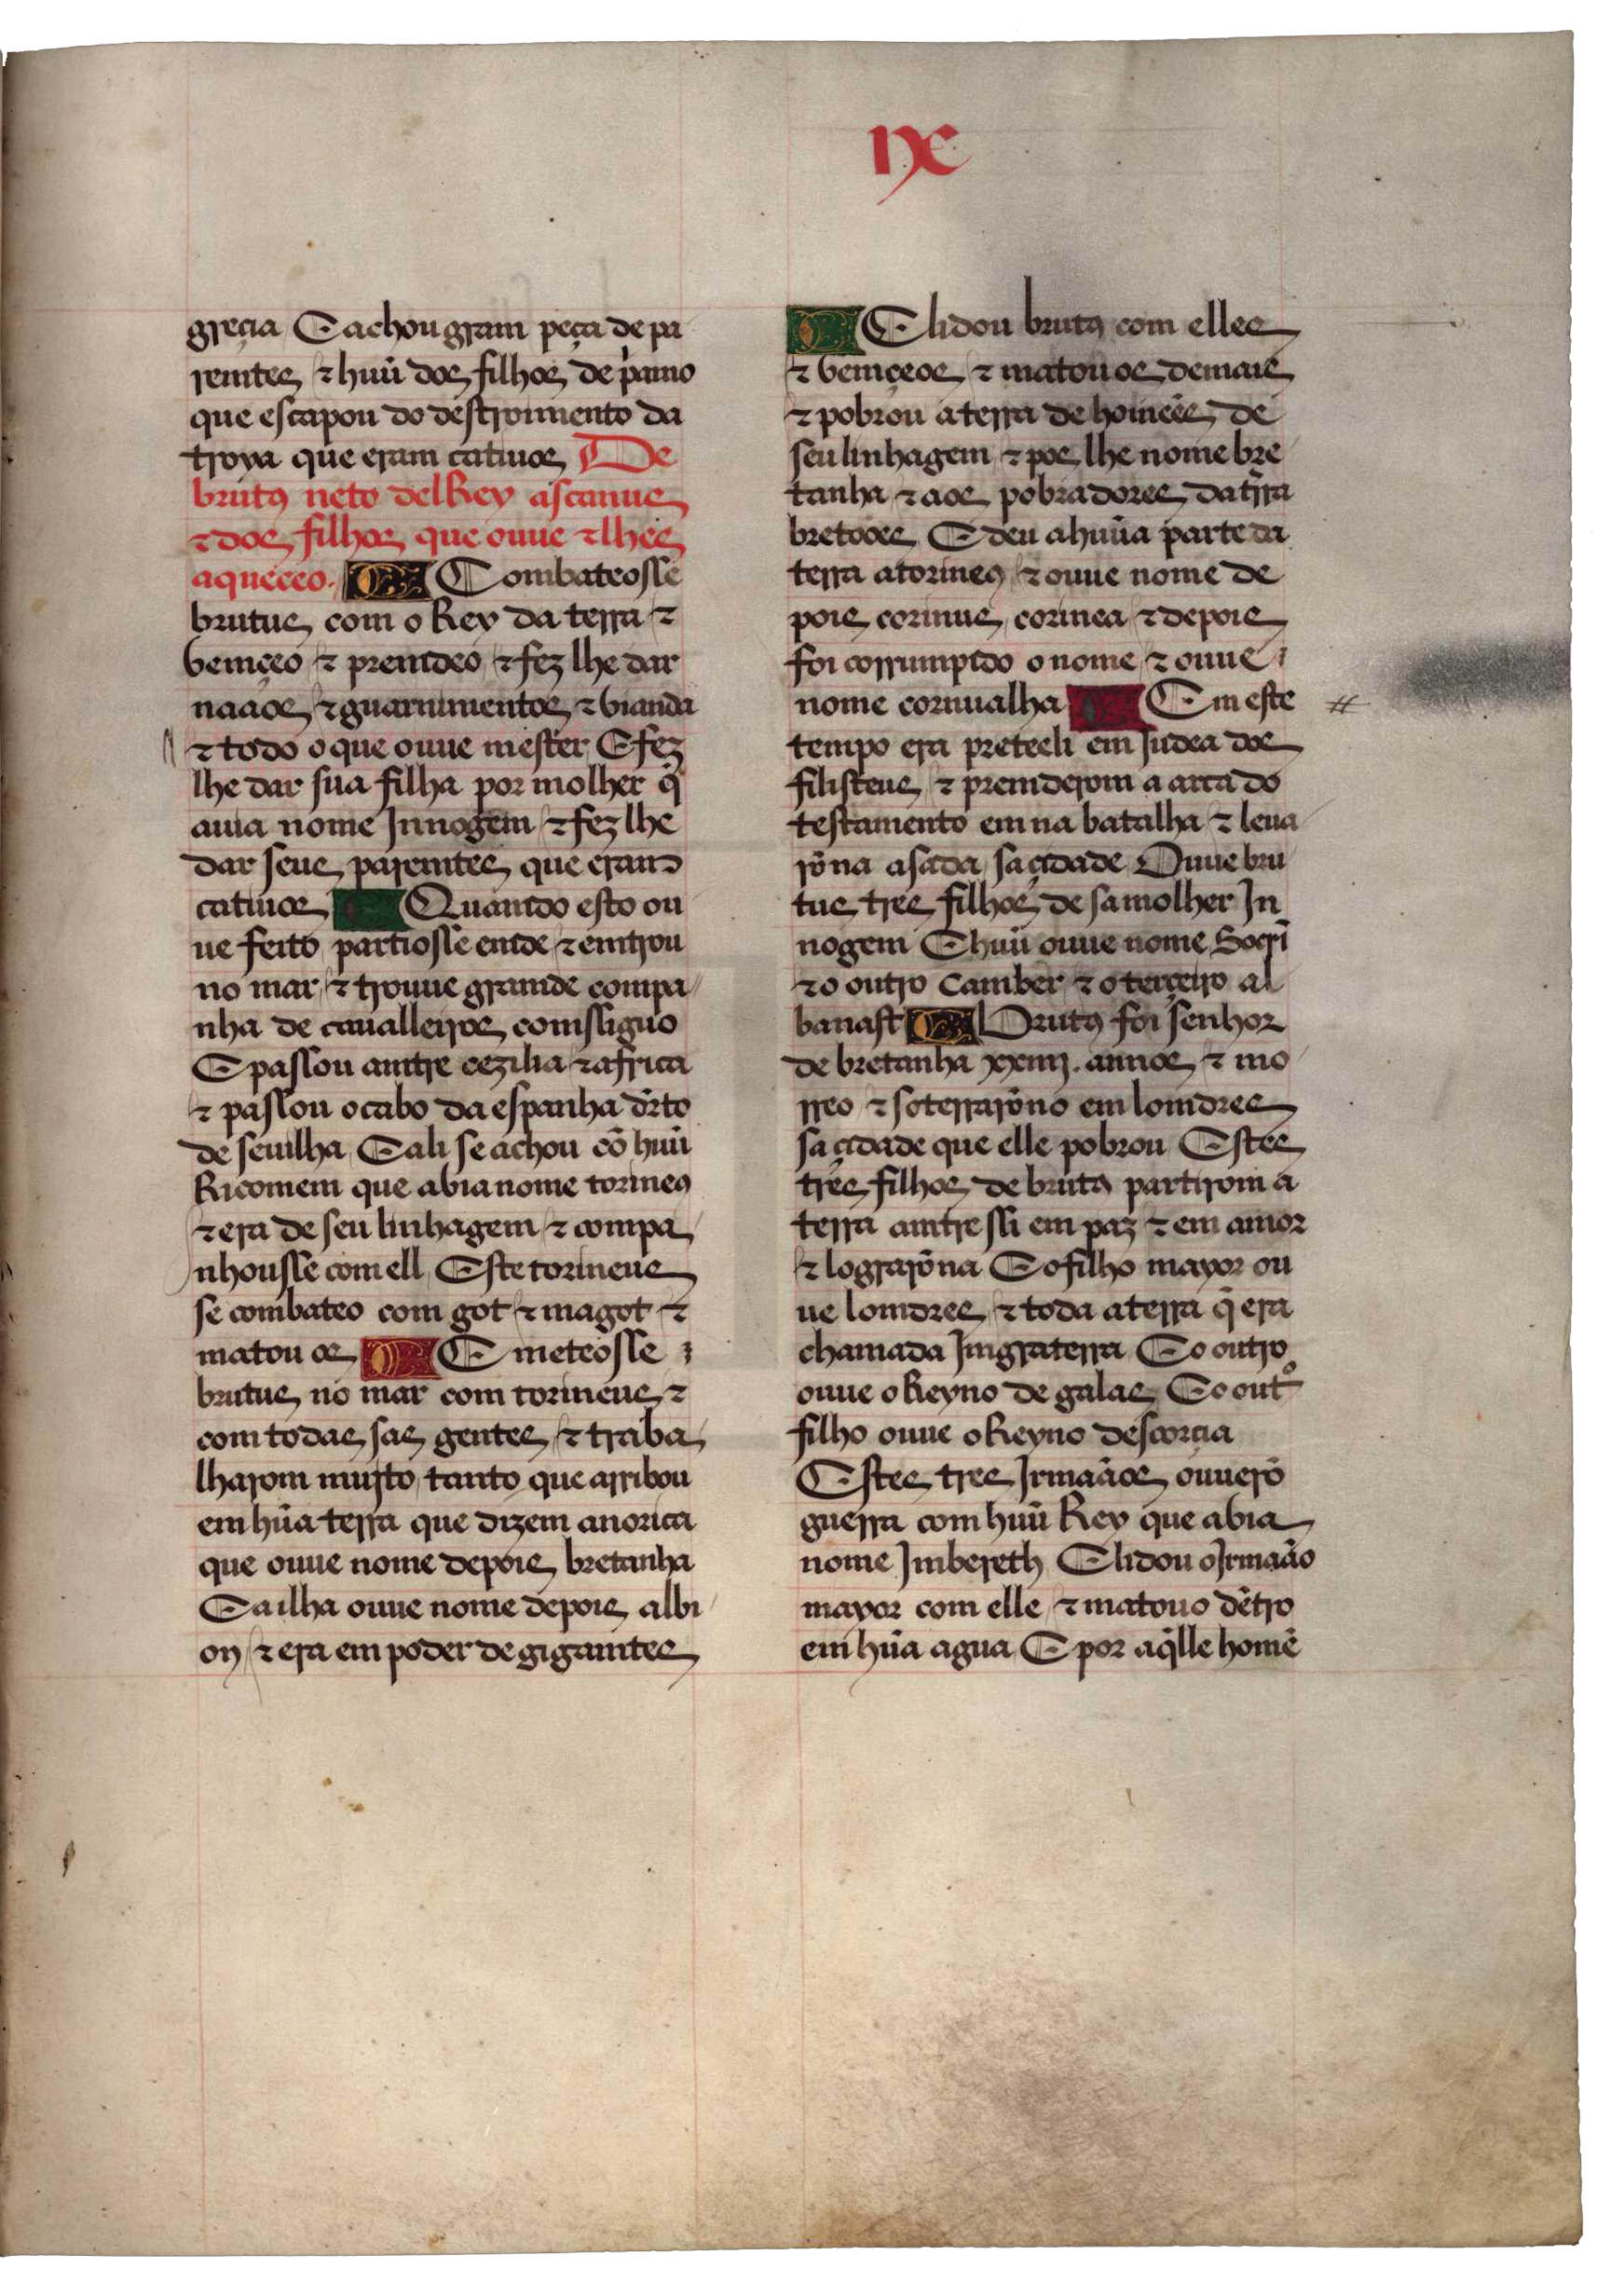 ix
greçia / E achou gram peça de pa
remtes / ⁊ huũ dos filhos de p'amo
que escapou do destroimento da
troya que eram catiuos / De
brut9 neto delRey ascanus
⁊ dos filhos que ouue ⁊ lhes
aqueçeo. Combateosse
brutus com o Rey da terra ⁊
bemçeo / ⁊ premdeo / ⁊ fez lhe dar
naãos / ⁊ guarnimentos / ⁊ bianda
⁊ todo o que ouue mester / E fez
lhe dar sua filha por molher q̃
auia nome Jnnogem / ⁊ fez lhe
dar seus paremtes que eram
catiuos Quamdo esto ou
ue feito / partiosse emde / ⁊ emtrou
no mar / ⁊ trouue gramde compa /
nha de caualleiros comssiguo
E passou amtre cezilia / ⁊ africa
⁊ passou o cabo da espanha dr̃to
de seuilha / E ali se achou cõ huũ
Ricomem que abia nome torine9
/ ⁊ era de seu linhagem / ⁊ compa /
nhousse com ell / Este torineus
se combateo com got / ⁊ magot / ⁊
matou os E meteosse
brutus no mar com torineus / ⁊
com todas sas gentes / ⁊ traba /
lharom muyto / tanto que arribou
em hũa terra que dizem anorica
que ouue nome depois bretanha
E a ilha ouue nome depois albi /
on / ⁊ era em poder de gigamtes
E lidou brut9 com elles
⁊ bemçeos / ⁊ matou os demais
⁊ pobrou a terra de homeẽs de
seu linhagem / ⁊ pos lhe nome bre
tanha / ⁊ aos pobradores da tr̃ra
bretoões / E deu a huũa parte da
terra a torine9 / ⁊ ouue nome de
pois corinus / corinea / ⁊ depois
foi corrumpido o nome / ⁊ ouue
nome cornualha Em este
tempo era preteeli em Judea dos
filisteus / ⁊ premderom a arca do
testamento em na batalha / ⁊ leua /
rõna a sada / sa çidade / Ouue bru
tus tres filhos de sa molher Jn
nogem / E huũ ouue nome Socri
⁊ o outro Camber / ⁊ o terçeiro al
banast Brut9 foi senhor
de bretanha xxiiij. annos / ⁊ mo /
rreo / ⁊ soterrarõno em lomdres
sa çidade que elle pobrou / Estes
tres filhos de brut9 partirom a
terra amtre ssi em paz / ⁊ em amor
⁊ lograrõna / E o filho mayor ou
ue lomdres / ⁊ toda a terra q̃ era
chamada Jmgraterra / E o outro
ouue o Reyno de galas / E o outº
filho ouue o Reyno descorçia
Estes tres Jrmaãos ouuerõ
guerra com huũ Rey que abia
nome Jmbereth / E lidou o Jrmaão
mayor com elle / ⁊ matouo dẽtro
em hũa agua / E por aq̃lle homẽ